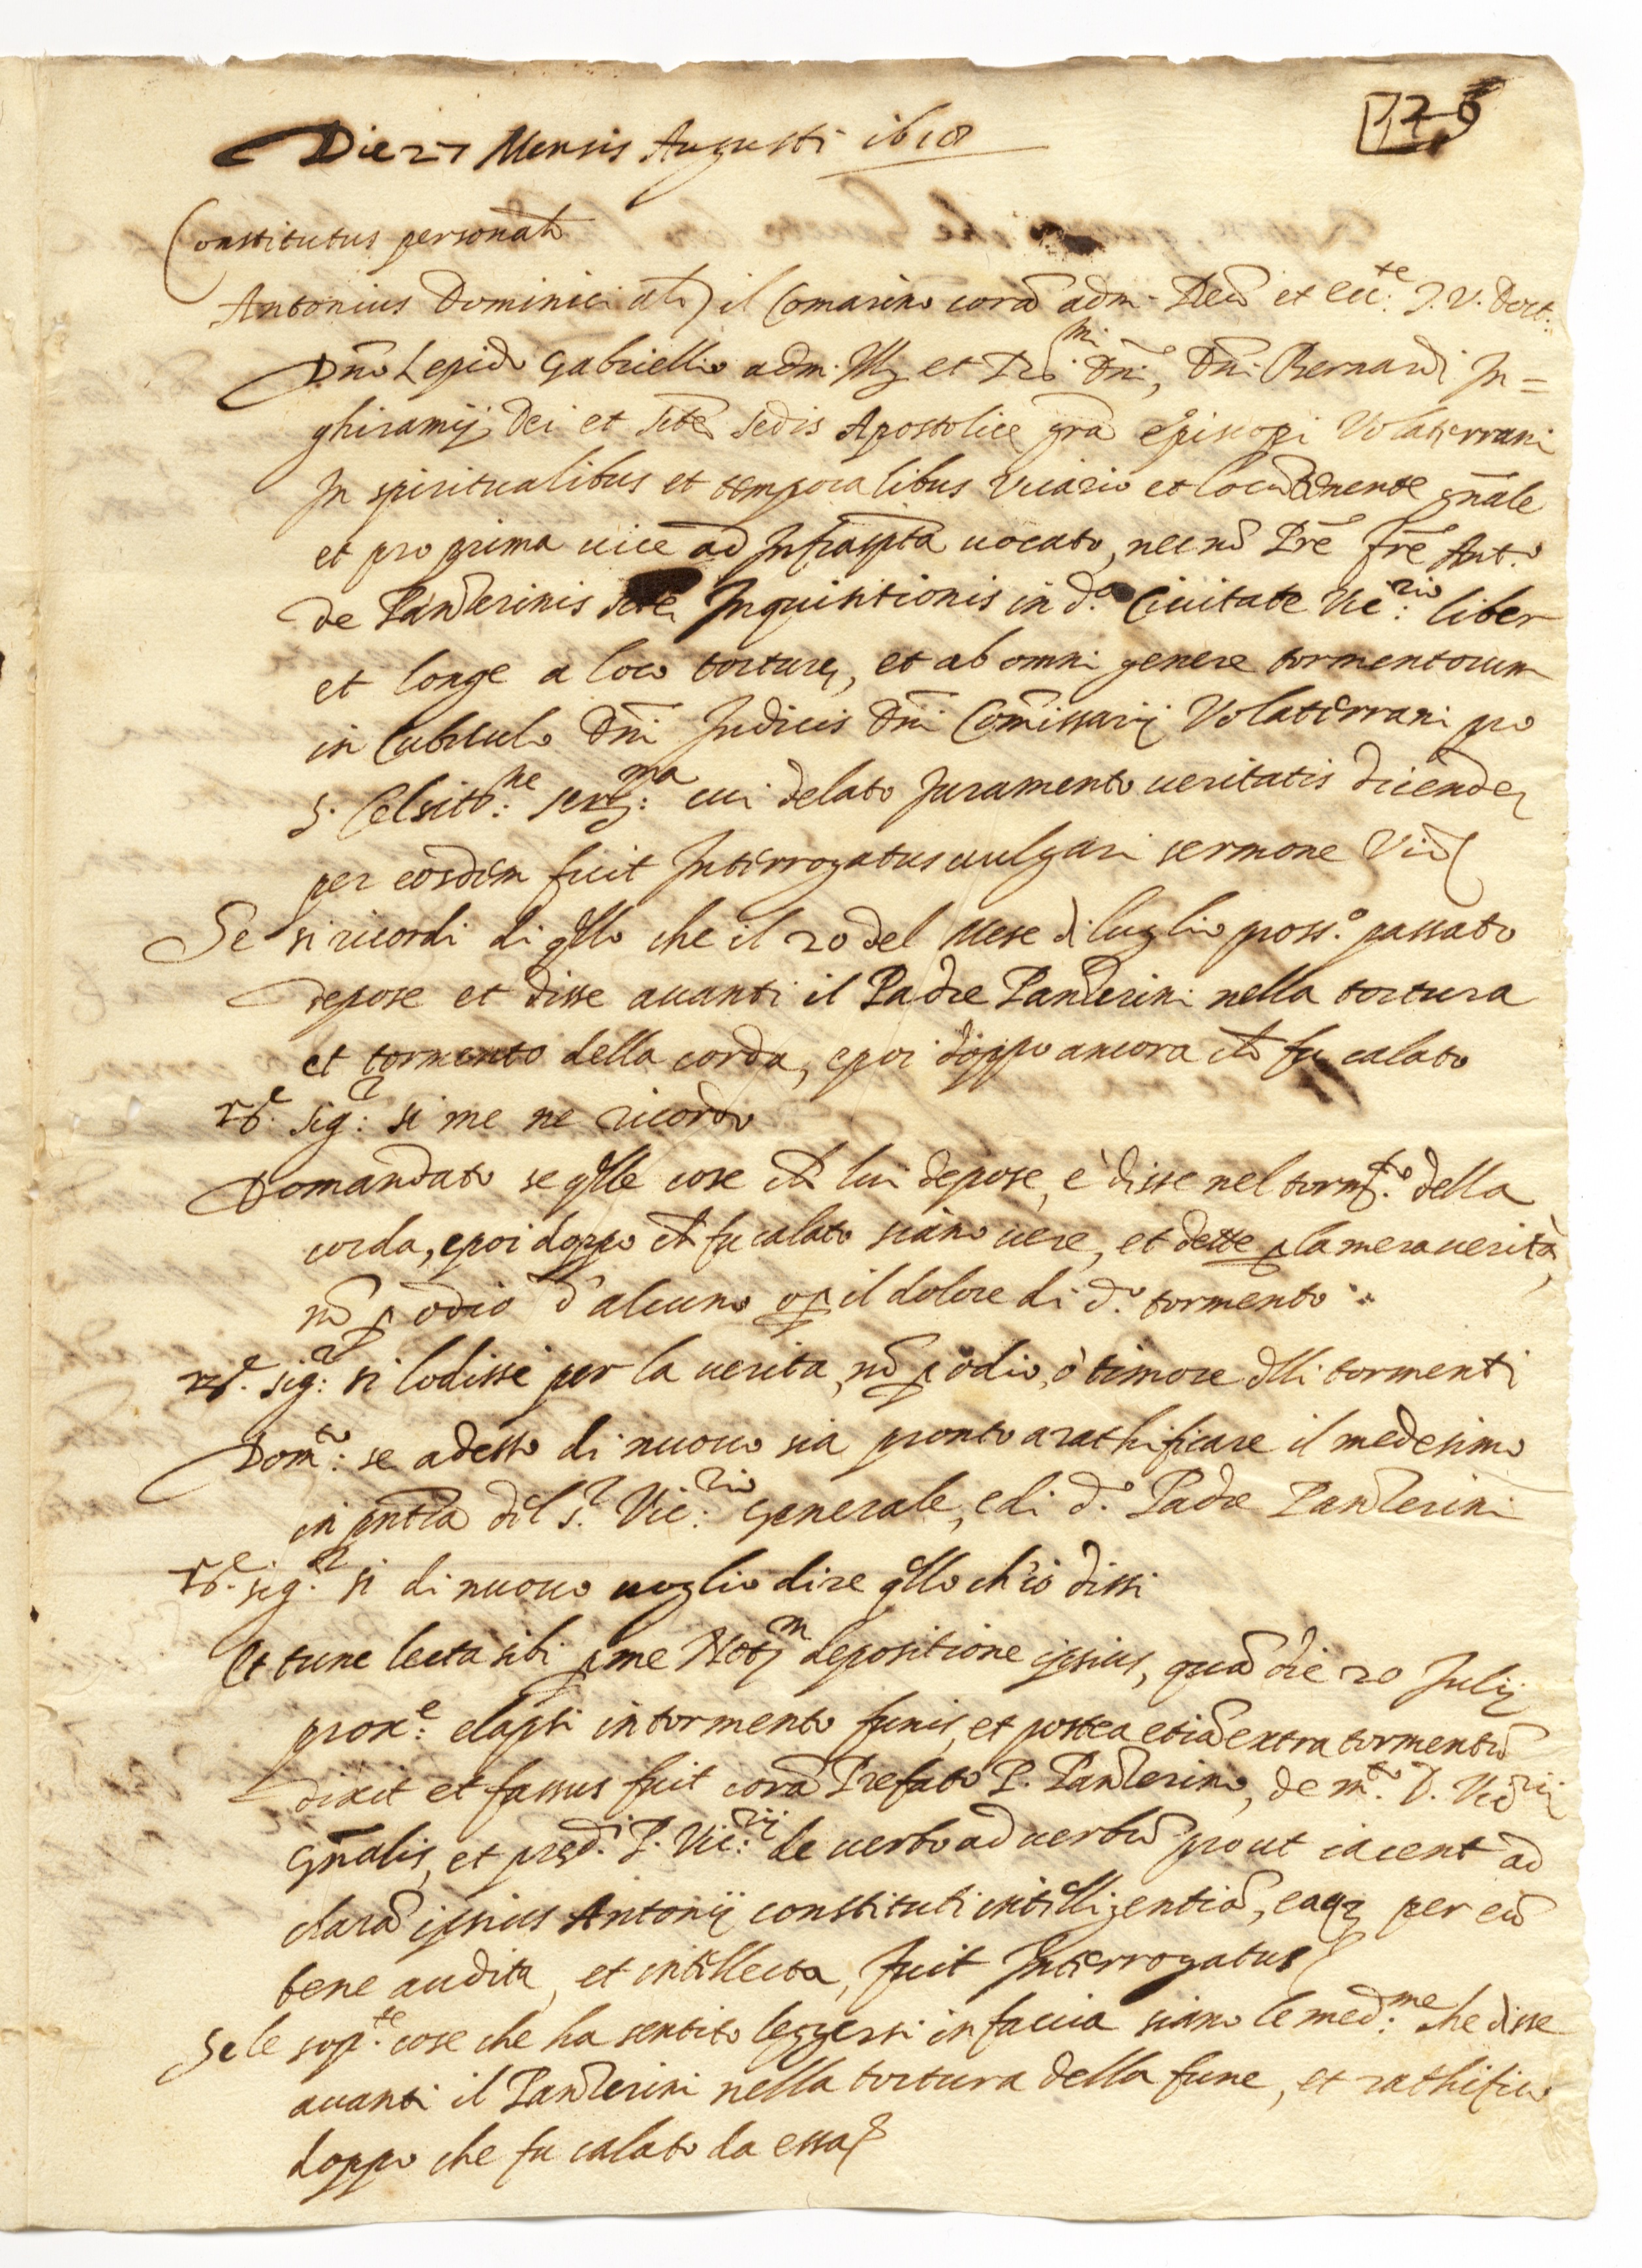 126
Die 27 Mensis Augusti 1618
Constitutus personalr
Antonius Dominici als il Comarino corã adm. Reũ et ecc.te J. V. Doct:
Dño Lepido Gabriellio adm. Ill et R.mi Dñi, Dñi Bernardi In=
ghiramij, Dei et Ste Sedis Apostolice grã episcopi Volaterrani
In spiritualibus et temporalibus Vicario et locũtenente gñale
et pro prima vice ad Infrascpta vocato, nec nõ Pre fre Ant.o
de Panterinis Ste Inquisitionis in d.a Civitate Vic:rio liber
et longe a loco torture, et ab omni genere tormentorum
in Cubiculo Dñi Judicis Dñi Comissarij Volaterrani pro
S. Celsit:ne Ser:ma cui delato Juramento veritatis dicende
per eosdem fuit Interrogatus vulgari sermone Vid
Se si ricordi di qllo che il 20 del Mese di luglio pross.o passato
depose et disse avanti il Padre Panterini nella tortura
et tormento della corda, e poi doppo ancora ch fu calato
Rs.e sig:r si me ne ricordo
Domandato se qlle cose ch lui depose, e disse nel torm.to della
corda, e poi doppo ch fu calato siano vere, et dette p la mera verità,
nõ p odio d'alcuno o p il dolore di d.o tormento
Rs.e sig:r si lo dissi per la verita, nõ p odio, ò timore dlli tormenti
Dom:to se adesso di nuovo sia pronto a rathificare il medesimo
in pñtia dil S.r Vic:rio Generale, e di d.o Padre Panterini
Rs.e sig:r si di nuovo voglio dire qllo ch'io dissi
Et tunc lecta sibi p me Not.m depositione ipsius, quã die 20 Julij
prox:e elapsi in tormento funis, et postea etiã extra tormentũ
dixit et fassus fuit corã Prefato P. Panterino, de m.to D. Vic.rij
Gñalis, et pred.i P. Vic:rij de verbo ad verbũ prout iacent ad
clarã ipsius Antonij constituti intelligentiã, eaq per eũ
bene audita, et intellecta, fuit Interrogatus
Se le sop.te cose che ha sentito leggersi in faccia siano le med:me che disse
avanti il Panterini nella tortura della fune, et rathificò
doppo che fu calato da essa